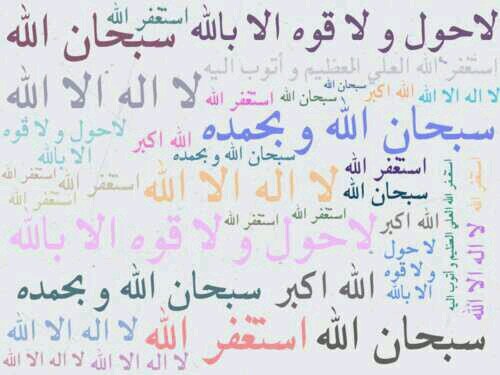 استغفر الله
لا حول و لا قوه الا بالله
سبحان الله
استغفر الله العلي العظيم و أتوب اليه
سبحان الله
لا اله الا الله
الله اكبر
سبحان الله
استغفر الله
لا اله الا الله
سبحان الله و بحمده
الله اكبر
لا حول و لا قوه
الا بالله
سبحان الله و بحمده
استغفر الله
استغفر الله
استغفر الله
لا اله الا الله
سبحان الله
استغفر الله
استغفر الله
استغفر الله
استغفر الله
الله اكبر
لا حول و لا قوه الا بالله
لا حول
و لا قوه
الا بالله
استغفر الله العلي العظيم و أتوب اليه
استغفر الله
لا اله الا الله
الله اكبر
سبحان الله و بحمده
سبحان الله
استغفر الله
لا اله الا الله
لا اله الا الله
لا اله الا الله